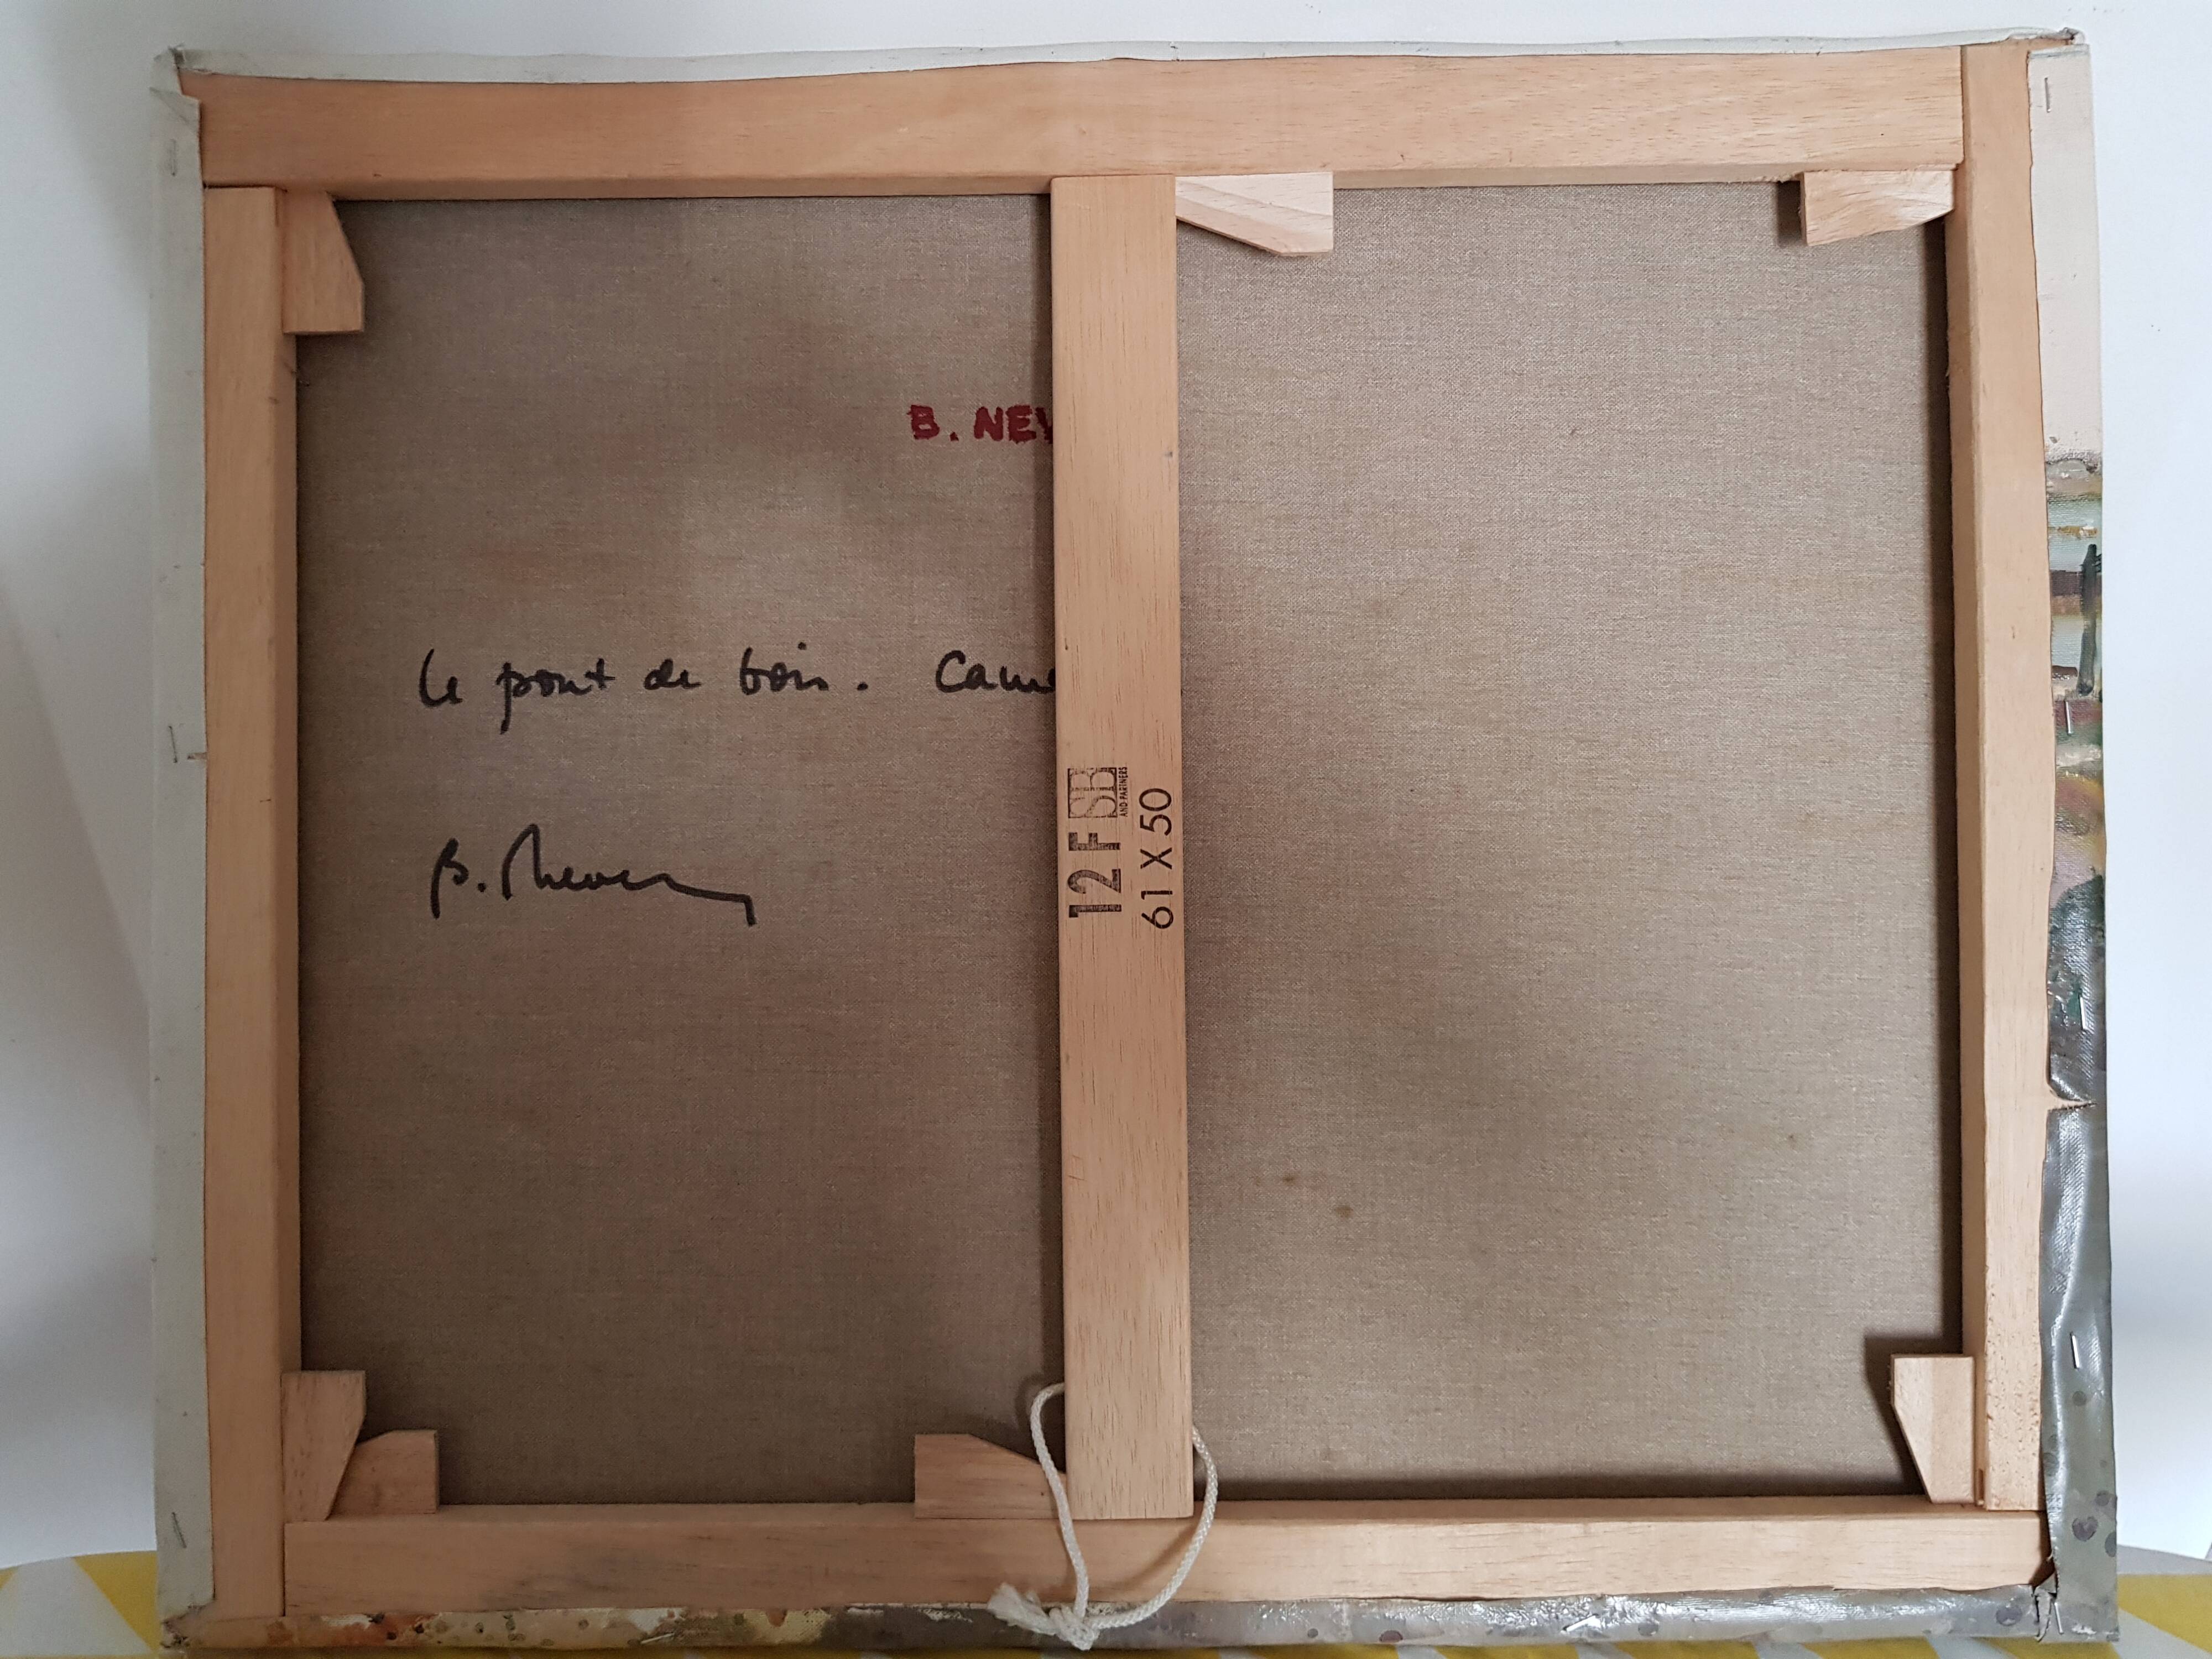 B. NEV
le pont de bois. Came
B. Neven
12 F SB
AND PARTNERS
61 X 50